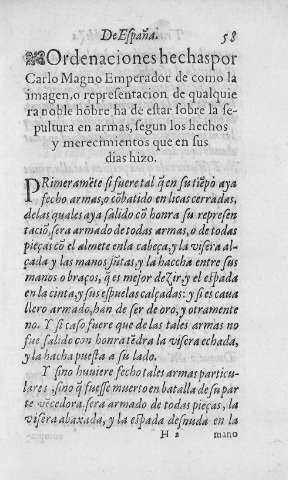 De España. 58
Ordenaciones hechas por
Carlo Magno Emperador de como la
imagen, o representacion de qualquie
ra noble hõbre ha de estar sobre la se-
pultura en armas, segun los hechos
y merecimientos que en sus
dias hizo.
PRimeramẽte si fuere tal q̃ en su tiẽpo aya
fecho armas, o cõbatido en licas cerradas,
de las quales aya salido cõ honra su represen
tacio͂, sera armado de todas armas, o de todas
pieças cõ el almete enla cabeça, y la visera al-
çada y las manos jũtas, y la haccha entre sus
manos o braços, q̃ es mejor dezir, y el espada
en la cinta, y sus espuelas calçadas: y si es caua
llero armado, han de ser de oro, y otramente
no. Y si caso fuere que de las tales armas no
fue salido con honra tẽdra la visera echada,
y la hacha puesta a su lado.
Y sino huuiere fecho tales armas particu-
lares, sino q̃ fuesse muerto en batalla de su par
te vẽcedora. sera armado de todas pieças, la
visera abaxada, y la espada desnuda en la
H 2 mano